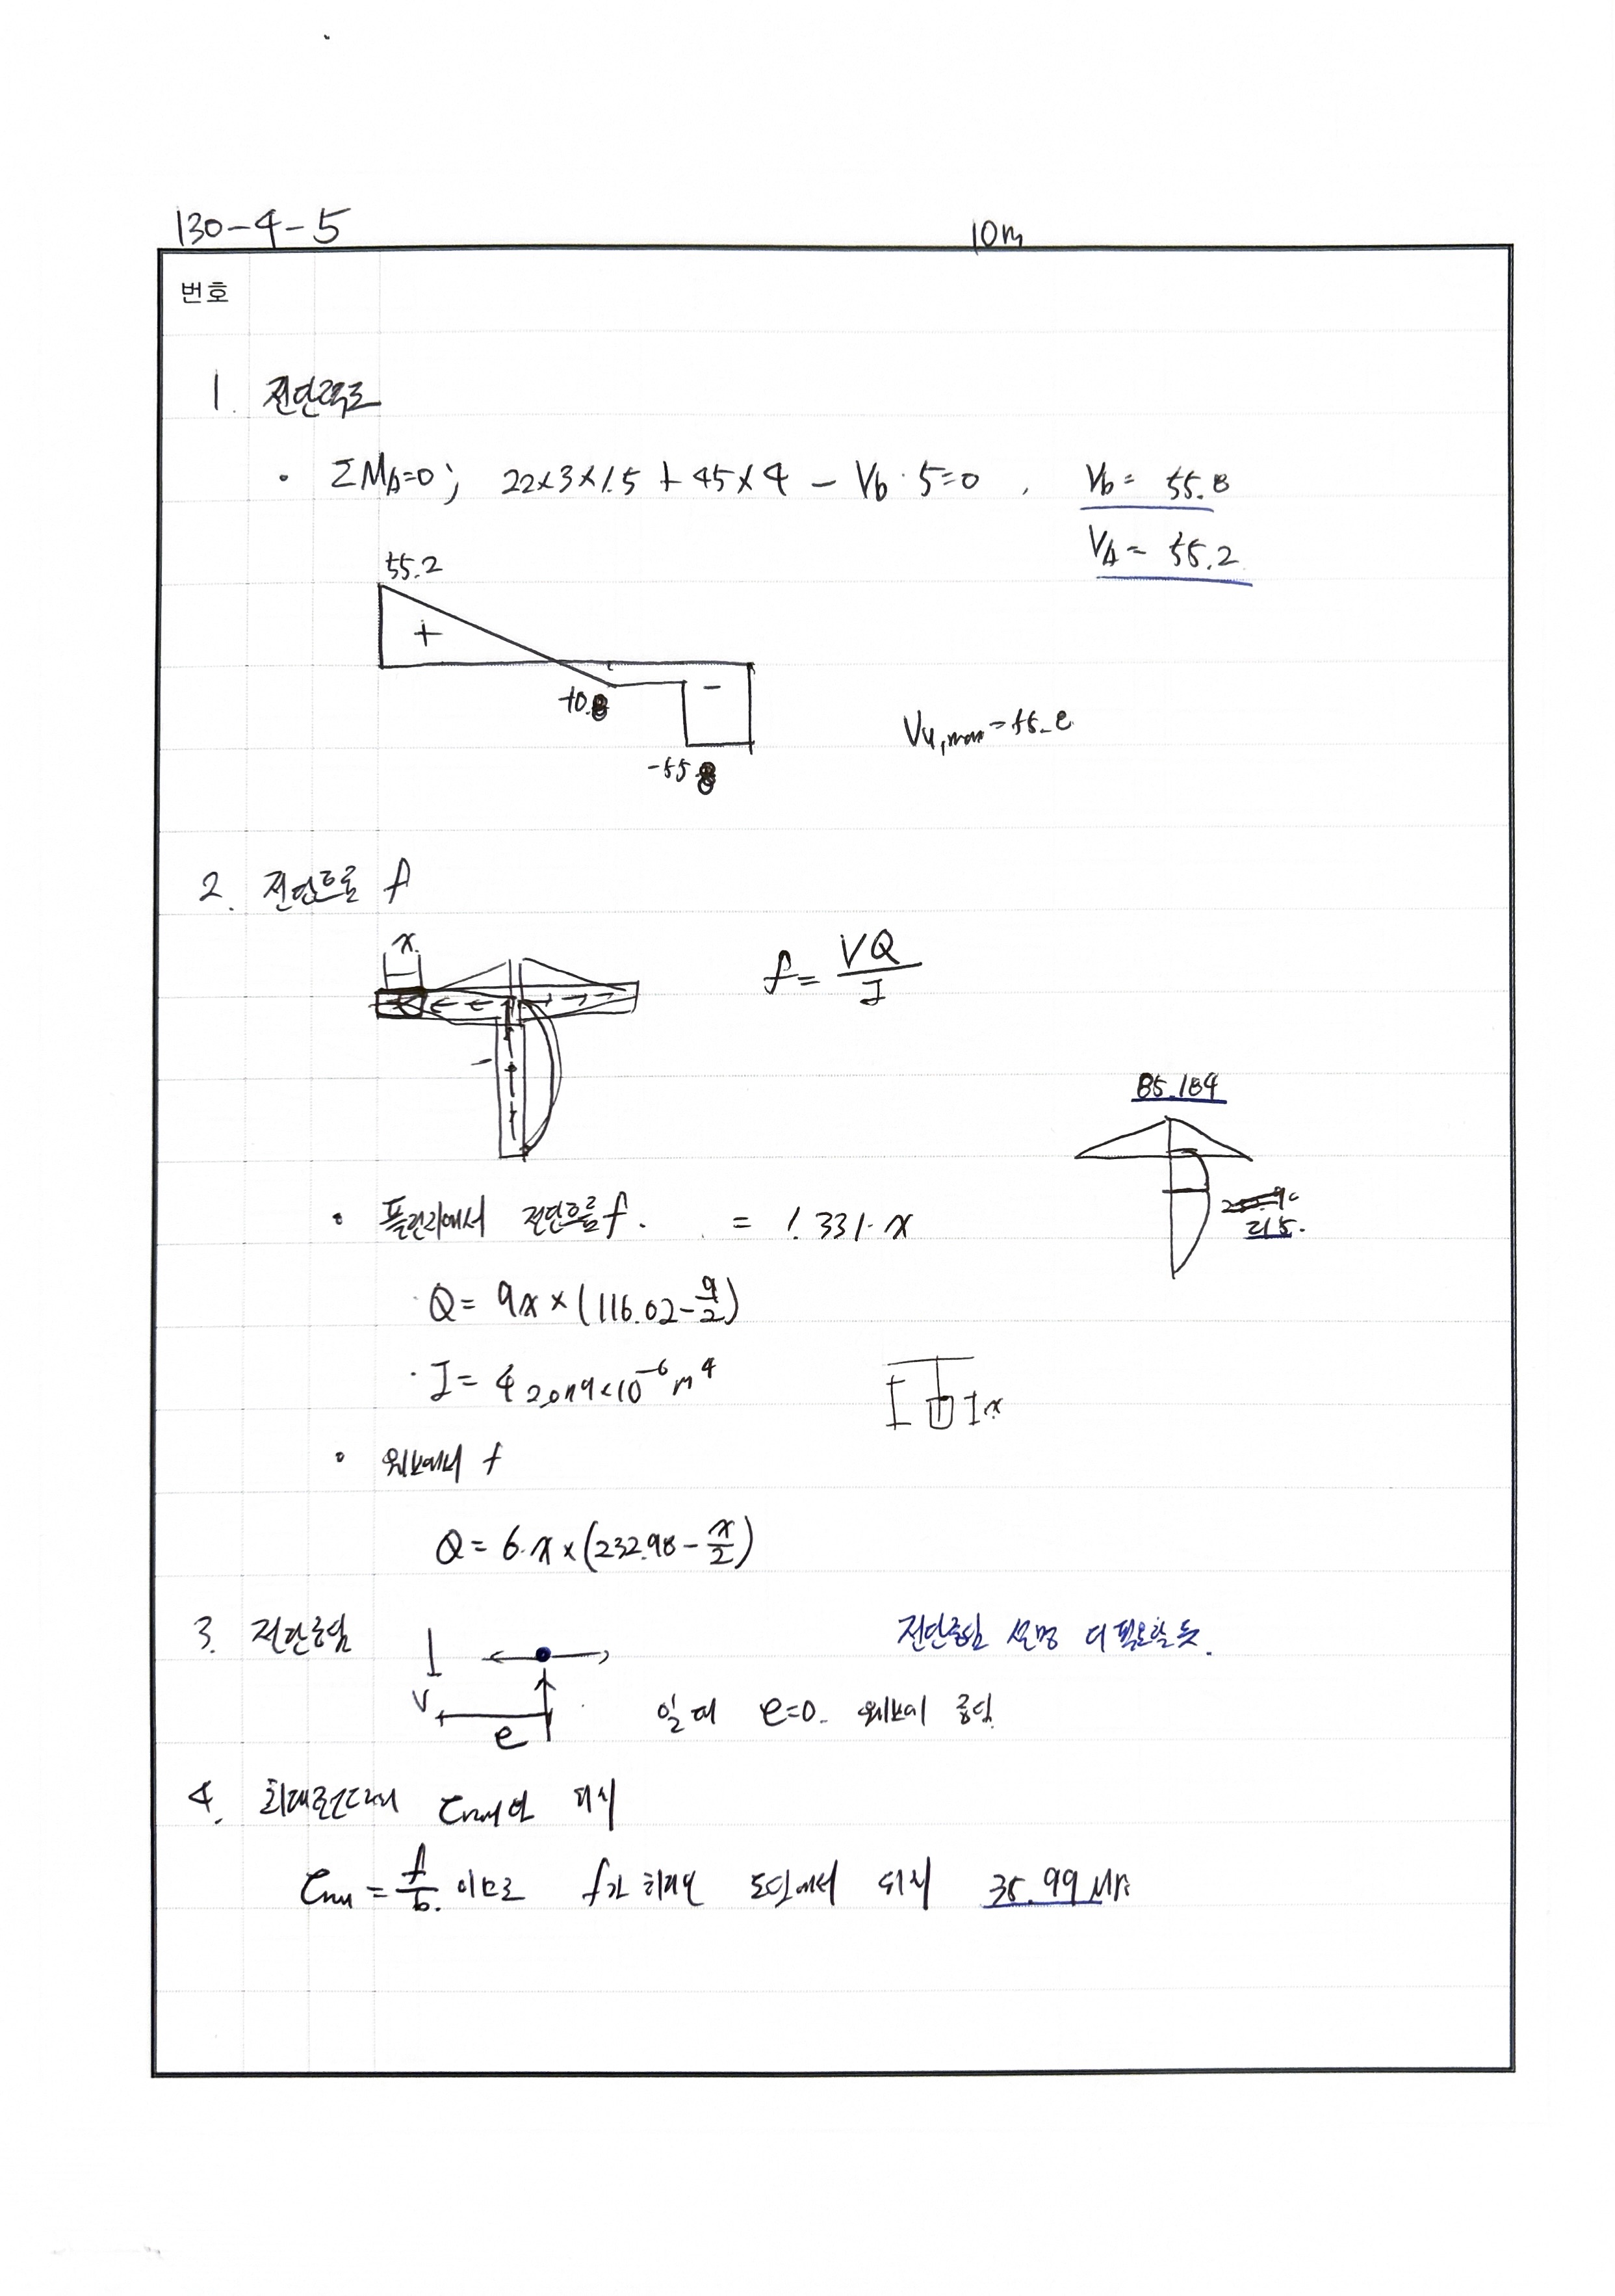 130-4-5
10m
번호
1. 전단력도
· ΣM_A=0; 22×3×1.5 + 45×4 - V_b·5=0, V_b= 55.8
V_A= 55.2
55.2
+
-10.8
-
-55.8
V_u,max=55.8
2. 전단흐름 f
x
f= VQ/I
85.184
· 플랜지에서 전단흐름 f. = 1.331·x
215.
· Q= 9x×(116.02-9/2)
· I= 42.0119×10^-6 m^4
x
· 웨브에서 f
Q= 6·x×(232.98-x/2)
3. 전단중심
전단중심 설명 더 필요할 듯.
V
e
일 때 e=0. 웨브이 중심
4. 최대 위치
τ = f/b. 이므로 f가 최대인 도심에서 위치 35.99 MPa